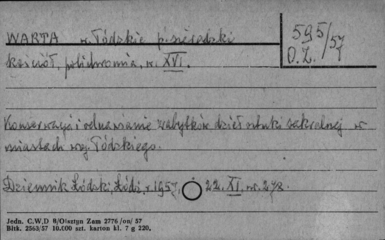 WARTA w. Łódzkie p. sieradzki
595/57
O.Z.
kościół, polichromia, w. XVI.
Konserwacja i odnawianie zabytków dzieł sztuki sakralnej w
miastach woj. Łódzkiego.
Dziennik Łódzki, Łódź, r. 1957, 22. XI, nr. 278.
Jedn. C.W.D 8/Olsztyn Zam 2776 /on/ 57
Bltk. 2565/57 10.000 szt. karton kl. 7 g 220.